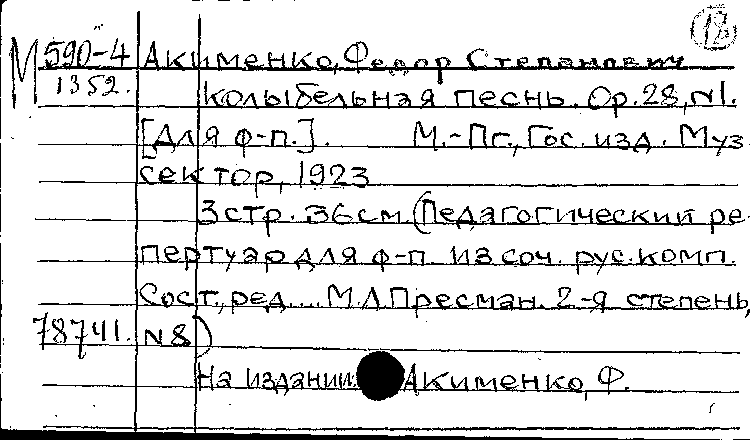 М 590-4 Акименко, Федор Степанович 18
1352. Колыбельная песнь. Ор.28, N1.
[Для ф-п.]. М.-Пг., Гос. изд. Муз
сектор, 1923
3 стр. 36 см. (Педагогический ре-
пертуар для ф-п. из соч. рус. комп.
Сост., ред.... М.Л.Пресман. 2-я степень,
78741. N 8)
На издании: Акименко, Ф.